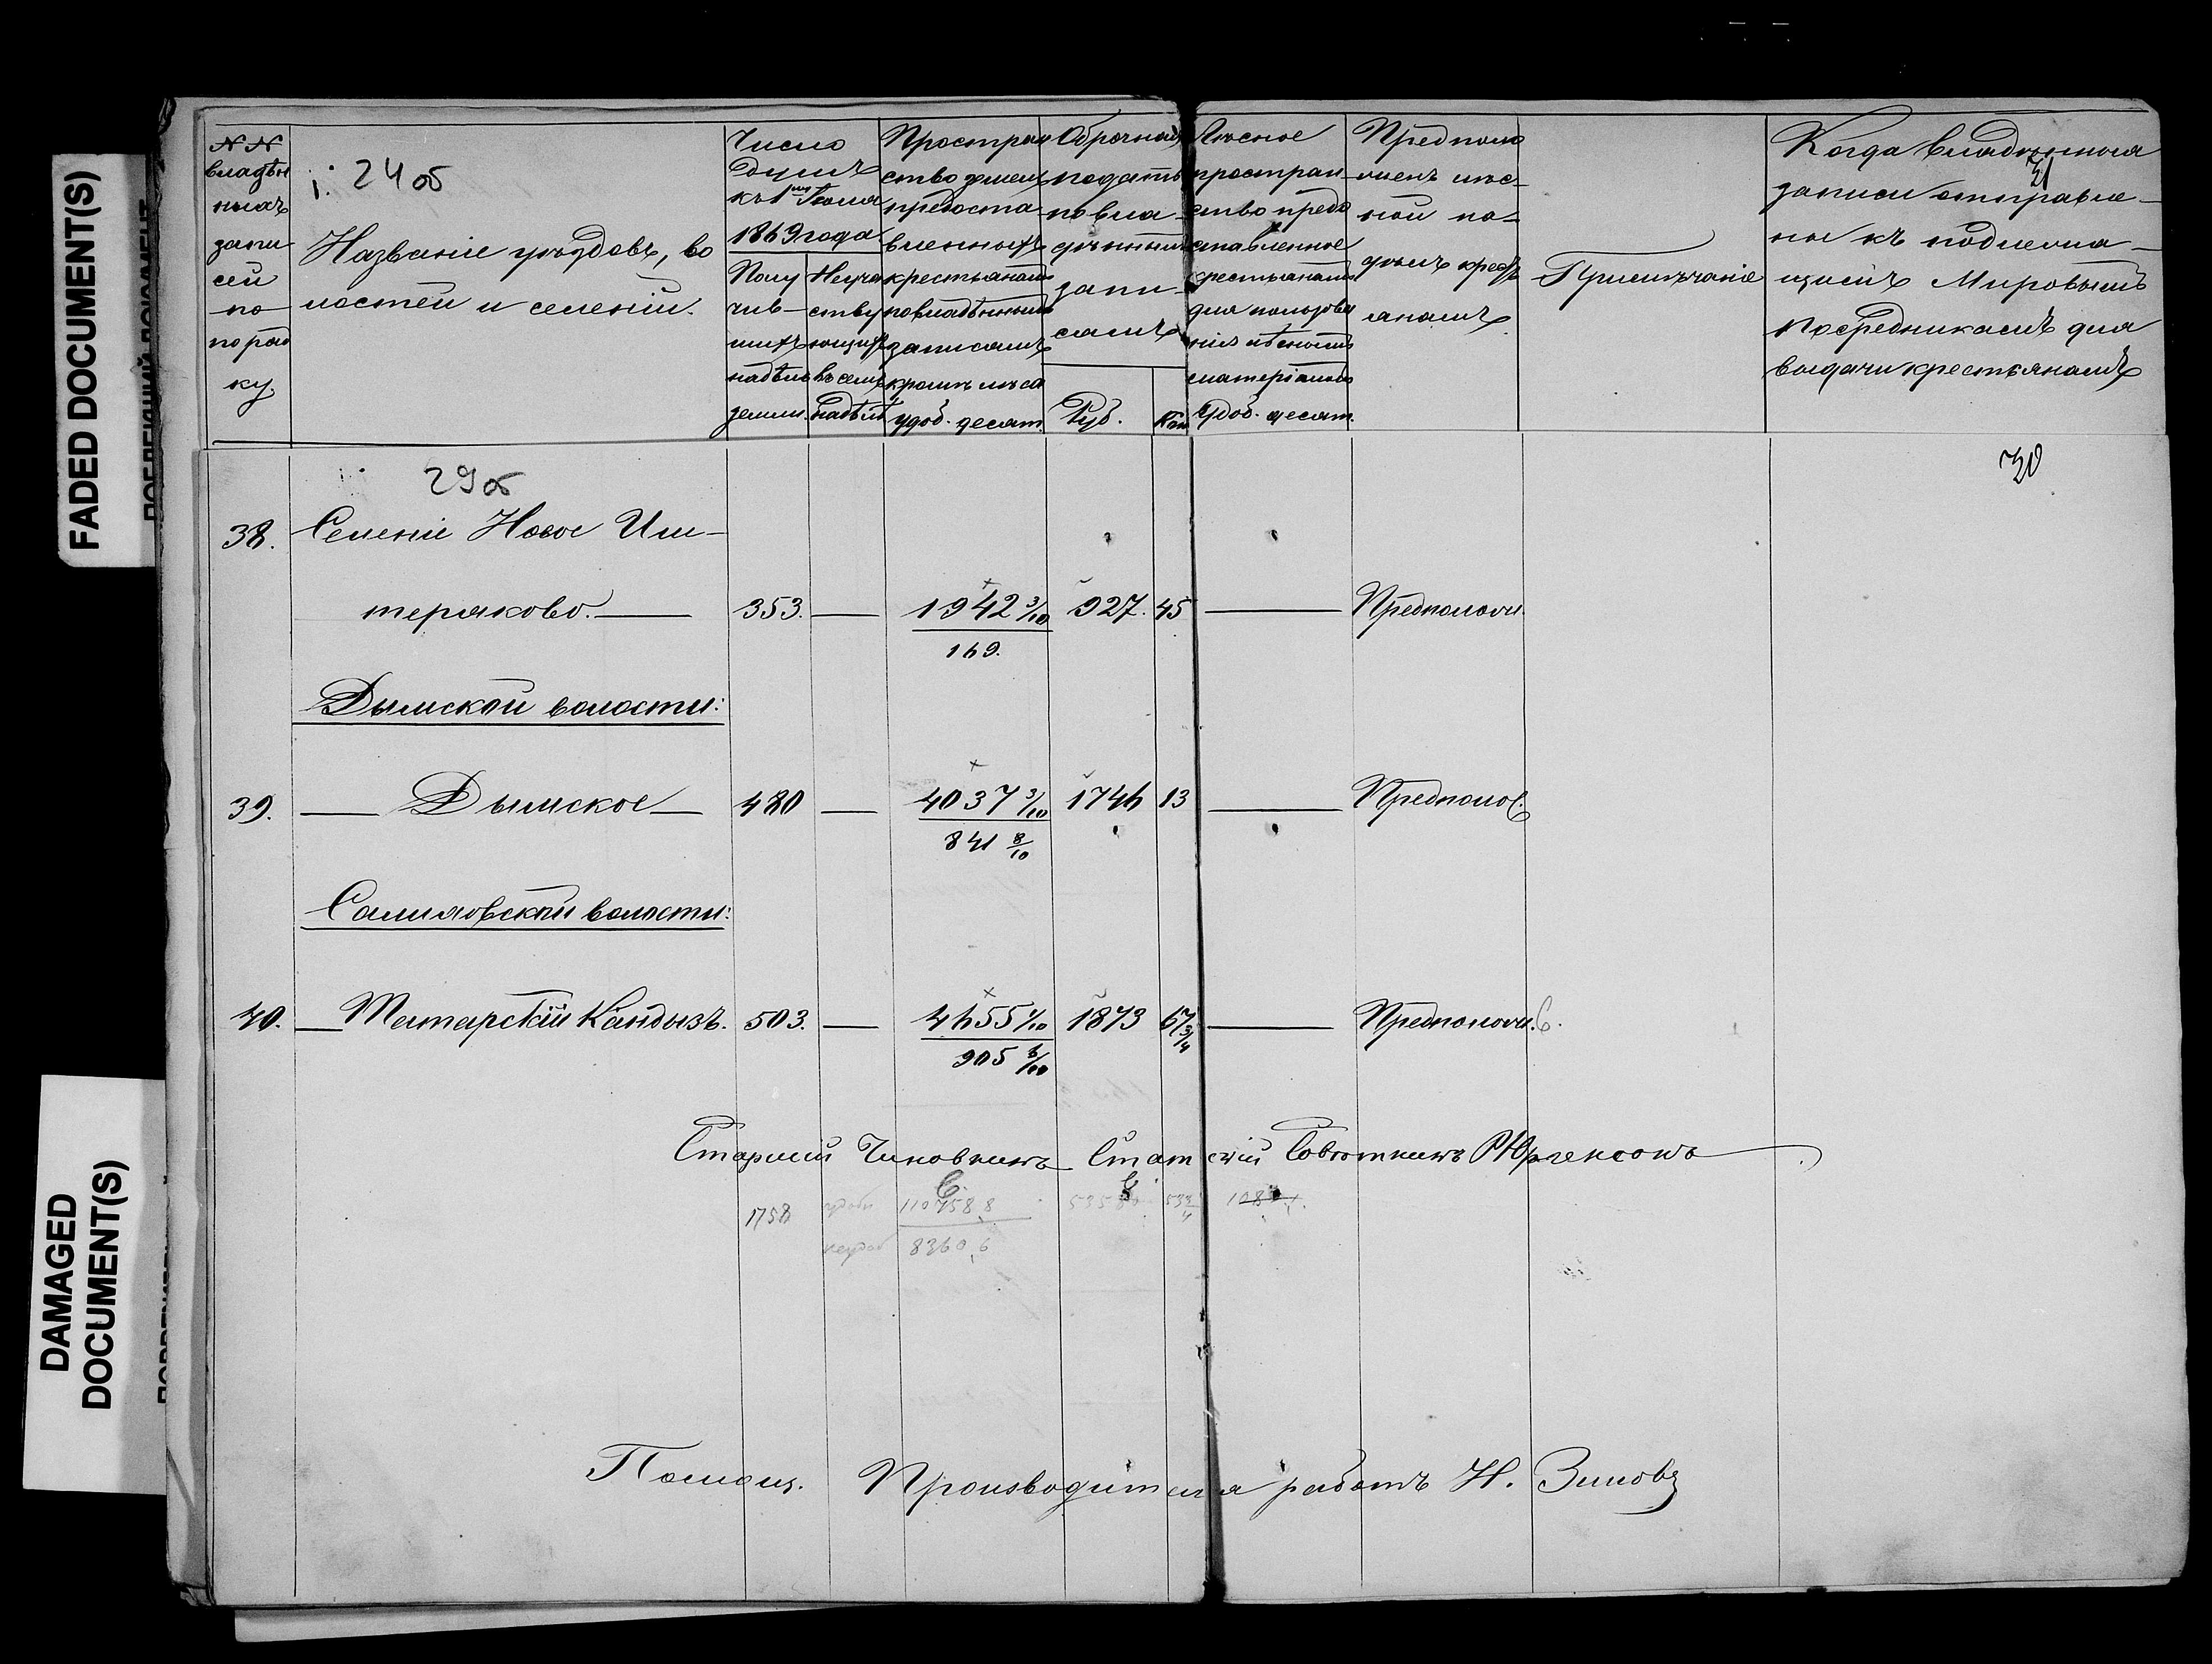 FADED DOCUMENT(S)
DAMAGED
DOCUMENT(S)
№ №
владѣн
ныхъ
запи
сей
по
поряд
ку.
24 об
Названіе уѣздовъ, во
лостей и селеній.
Число
душъ
къ 1му Іюля
1869 года
Полу
чив-
шихъ
надѣлъ
земли.
Неуча
ству
ющихъ
въ семъ
надѣлѣ
Простран
ство земель
предоста
вленныхъ
крестьянамъ
по владѣннымъ
записямъ
кромѣ лѣса
удоб. десят.
Оброчная
подать
по вла-
дѣннымъ
запи-
самъ
Руб. Коп.
Лѣсное
простран-
ство предо
ставленное
крестьянамъ
для пользова
нія лѣснымъ
матеріаломъ
Удоб. десят.
Предполо
женъ лѣс-
ной на-
дѣлъ крест
янамъ
Примѣчаніе
Когда владѣнныя
31
записи отправле-
ны къ подлежа-
щимъ Мировымъ
Посредникамъ для
выдачи крестьянамъ
29 об
30
38. Селеніе Новое Иш-
теряково. — 353. — 1942 3/10 927. 45 — Предполож.
169.
Дымской волости:
39. — Дымское — 480 — 4037 3/10 1746 13 — Предполож.
841 8/10
Салиховской волости:
40. — Татарскій Кандызъ. 503. — 4655 1/10 1873 67 3/4 — Предполож. С.
905 6/100
Старшій Чиновникъ Статскій Совѣтникъ Юргенсонъ
1758 удобн 110758,8 535 53 3/4
неудоб 8360,6
Помощ. Производителя работъ Н. Зимовъ